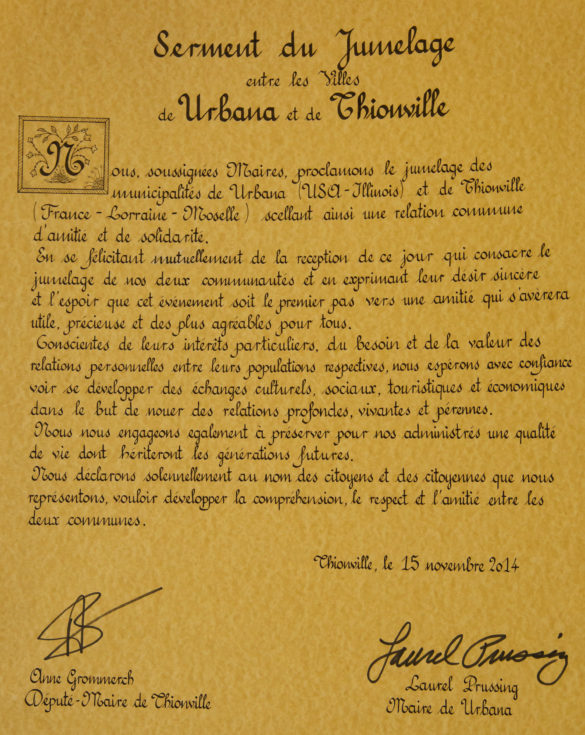 Serment du Jumelage
entre les Villes
de Urbana et de Thionville
Nous, soussignées Maires, proclamons le jumelage des
municipalités de Urbana (USA-Illinois) et de Thionville
(France-Lorraine-Moselle) scellant ainsi une relation commune
d'amitié et de solidarité.
En se félicitant mutuellement de la reception de ce jour qui consacre le
jumelage de nos deux communautés et en exprimant leur désir sincère
et l'espoir que cet évènement soit le premier pas vers une amitié qui s'avèrera
utile, précieuse et des plus agréables pour tous.
Conscientes de leurs interêts particuliers, du besoin et de la valeur des
relations personnelles entre leurs populations respectives, nous espérons avec confiance
voir se développer des échanges culturels, sociaux, touristiques et économiques
dans le but de nouer des relations profondes, vivantes et pérennes.
Nous nous engageons également à préserver pour nos administrés une qualité
de vie dont hériteront les générations futures.
Nous déclarons solennellement au nom des citoyens et des citoyennes que nous
représentons, vouloir développer la compréhension, le respect et l'amitié entre les
deux communes.
Thionville, le 15 novembre 2014
Laurel Prussing
Anne Grommerch
Député-Maire de Thionville
Laurel Prussing
Maire de Urbana